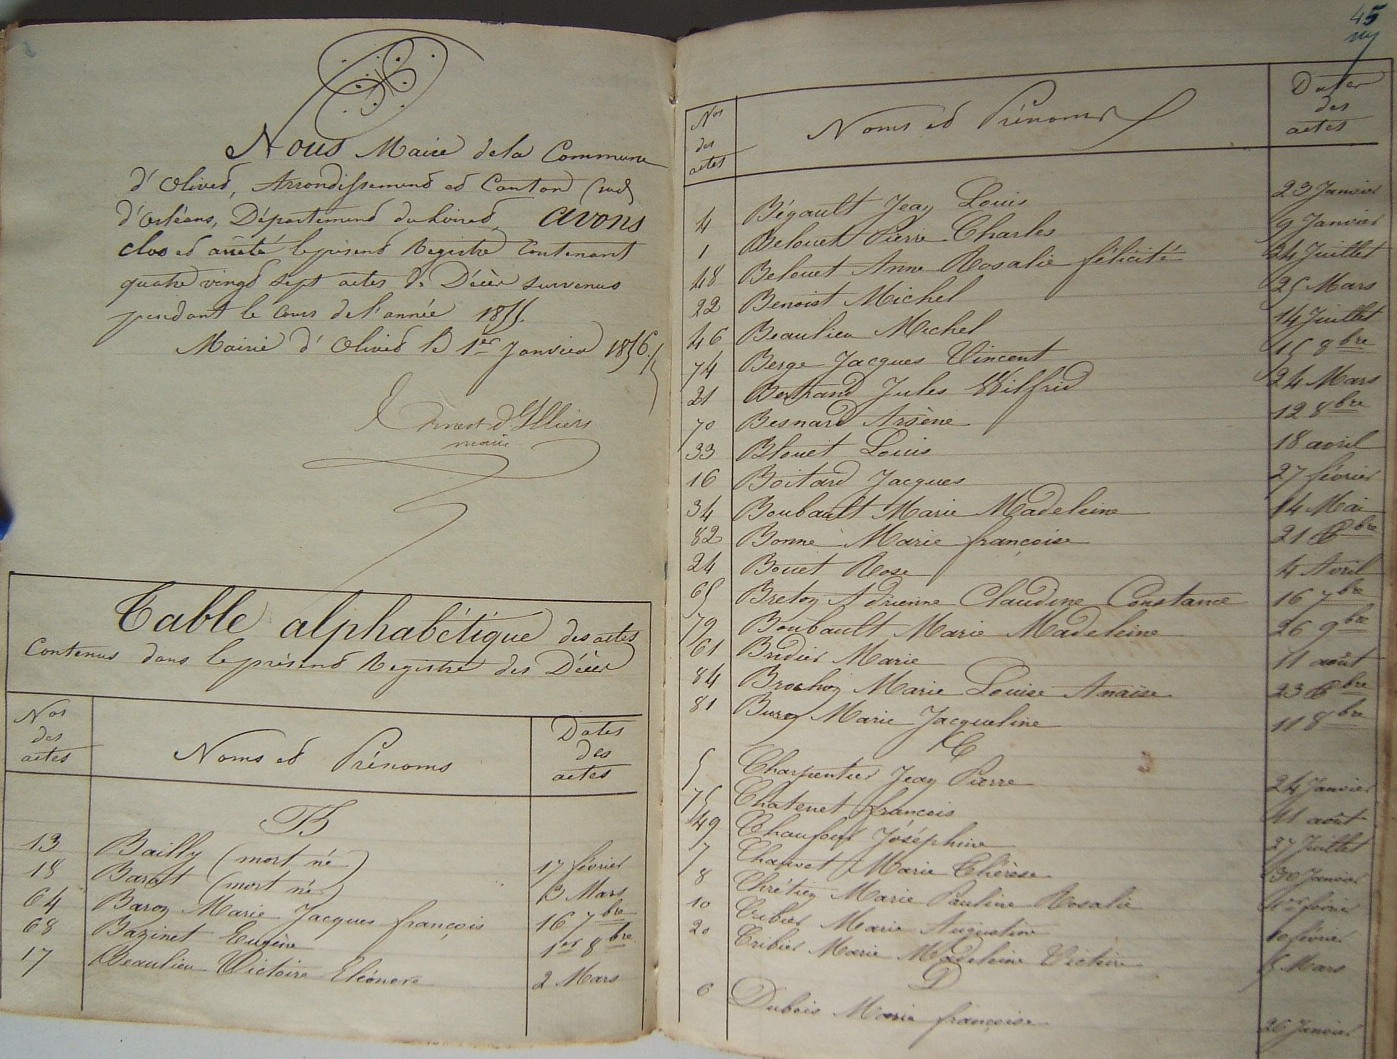 Nous Maire de la Commune
d'Olivet, Arrondissement et Canton Sud
d'Orléans, Département du Loiret, avons
clos et arrêté le présent Registre Contenant
quatre vingt sept actes de Décès survenus
pendant le Cours de l'année 1855.
Mairie d'Olivet le 1er Janvier 1856
Ernest d'Illiers
maire
Table alphabétique des actes
Contenus dans le présent Registre des Décès
Nos des actes Noms et Prénoms Dates des actes
B
13 Bailly (mort né) 17 février
18 Barat (mort né) 3 Mars
64 Baron Marie Jacques françois 16 7bre
68 Bazinet Eugène 1er 8bre
17 Beaulieu Victoire Eléonore 2 Mars
45
Nos des actes Noms et Prénoms Dates des actes
4 Bégault Jean Louis 23 Janvier
1 Belouet Pierre Charles 9 Janvier
48 Belouet Anne Rosalie félicité 24 Juillet
22 Benoist Michel 25 Mars
46 Beaulieu Michel 14 Juillet
74 Berge Jacques Vincent 15 8bre
21 Bertrand Jules Wilfrid 24 Mars
70 Besnard Arsène 12 8bre
33 Blouet Louis 18 avril
16 Boitard Jacques 27 février
34 Boubault Marie Madeleine 14 Mai
82 Bonne Marie françoise 21 bre
24 Bouet Rose 4 Avril
65 Breton Adrienne Claudine Constance 16 7bre
79 Boubault Marie Madeleine 26 9bre
61 Bridier Marie 11 août
84 Brochon Marie Louise Anaïse 23 bre
81 Buron Marie Jacqueline 11 8bre
C
5 Charpentier Jean Pierre 24 Janvier
75 Chatenet françois 11 août
49 Joséphine 27 Juillet
7 Chauvet Marie Thérèse 30 Janvier
8 Chrétien Marie Pauline Rosalie 1er février
10 Cribier Marie Augustine 10 février
20 Cribier Marie Madeleine Victoire 5 Mars
D
6 Dubois Marie françoise 26 Janvier